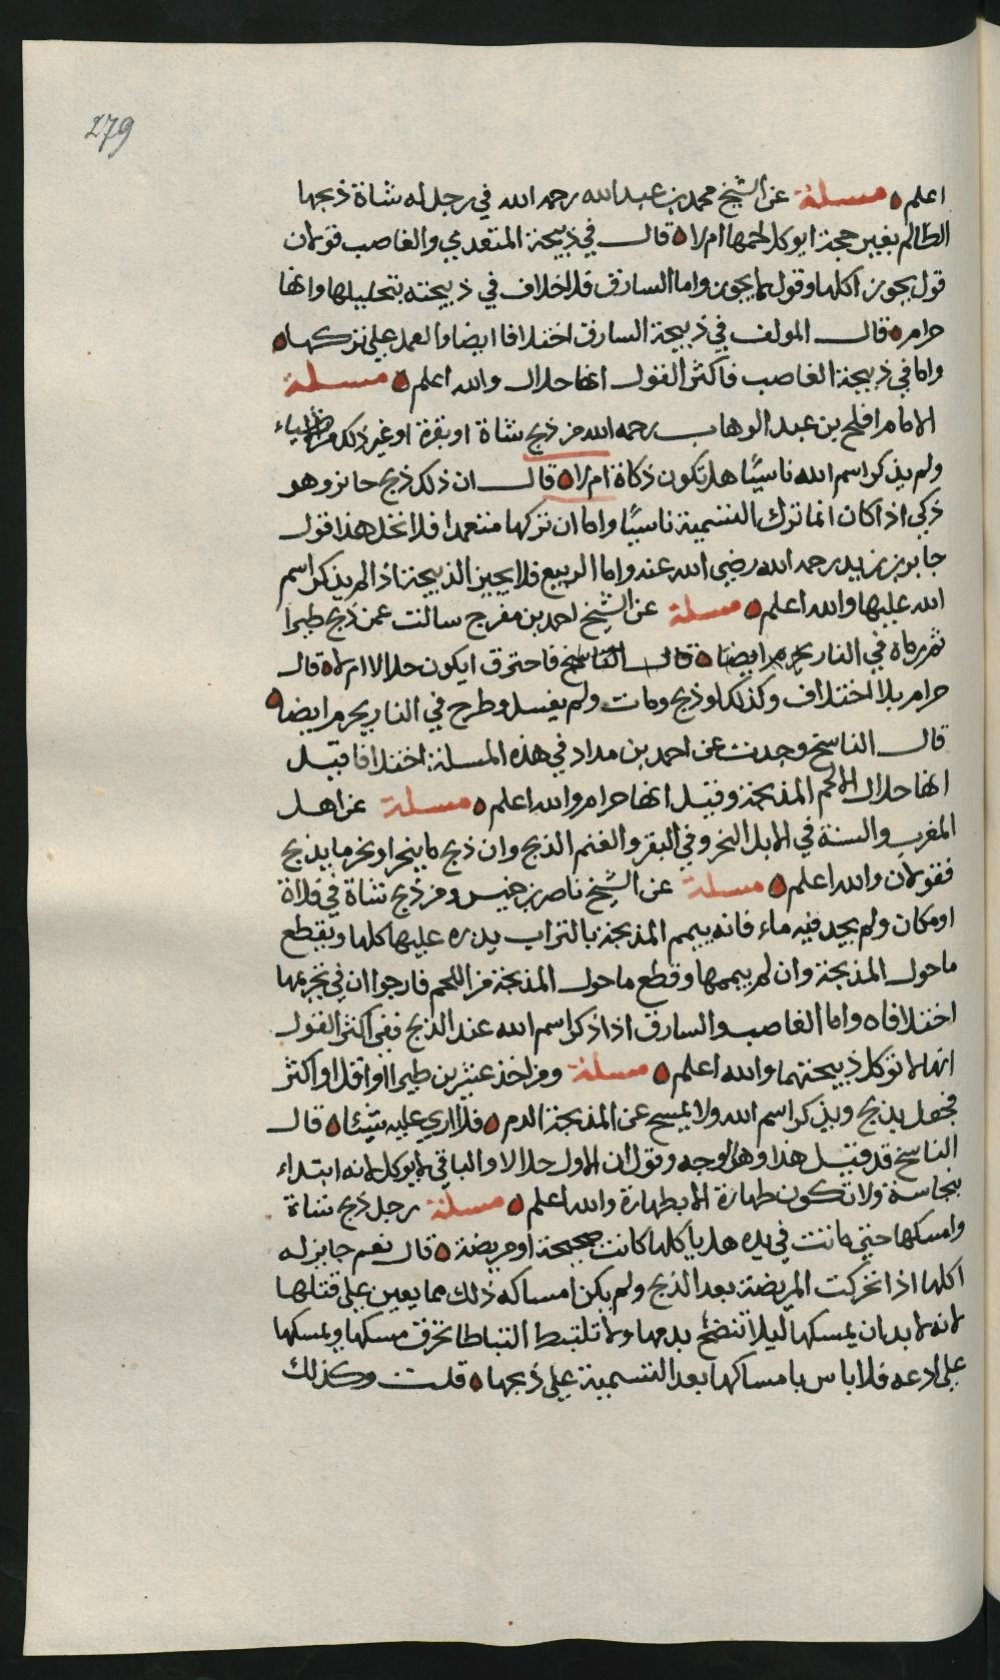 279
اعلم ۞ مسئلة عن الشيخ محمد بن عبدالله رحمه الله في رجل له شاة ذبحها
الظالم بغير حجة ايوكل لحمها ام لا ۞ قال في ذبيحة المتعدي والغاصب قولان
قول يجوز اكلها وقول لا يجوز واما السارق فلا خلاف في ذبيحته بتحليلها وانها
حرام ۞ قال المولف في ذبيحة السارق اختلافا ايضا والعمل على تركها ۞
واما في ذبيحة الغاصب فاكثر القول انها حلال والله اعلم ۞ مسئلة
الامام افلح بن عبد الوهاب رحمه الله من ذبح شاة او بقرة او غير ذلك من الاشياء
ولم يذكر اسم الله ناسيًا هل تكون ذكاة ام لا ۞ قال ان ذلك ذبح جائز وهو
ذكي اذا كان انما ترك التسمية ناسيًا واما ان تركها متعمدا فلا تحل هذا قول
جابر بن زيد رحمه الله رضي الله عنه واما الربيع فلا يجيز الذبيحة اذا لم يذكر اسم
الله عليها والله اعلم ۞ مسئلة عن الشيخ احمد بن مفرج سالت عمن ذبح طيرا
ثم رماه في النار يحرم ايضا ۞ قال الناسخ فاحترق ايكون حلالا ام لا ۞ قال
حرام بلا اختلاف وكذلك لو ذبح ومات ولم يغسل وطرح في النار يحرم ايضا ۞
قال الناسخ وجدت عن احمد بن مداد في هذه المسلة اختلافا قيل
انها حلال الا لحم المذبحة وقيل انها حرام والله اعلم ۞ مسئلة عن اهل
المغرب والسنة في الابل النحر وفي البقر والغنم الذبح وان ذبح ما ينحر او نحر ما يذبح
فقولان والله اعلم ۞ مسئلة عن الشيخ ناصر بن خميس ومن ذبح شاة في فلاة
او مكان ولم يجد فيه ماء فانه ييمم المذبحة بالتراب يدره عليها كلها ويقطع
ما حول المذبحة وان لم ييممها وقطع ما حول المذبحة من اللحم فارجوا ان في تحريمها
اختلافا ۞ واما الغاصب والسارق اذا ذكر اسم الله عند الذبح ففي اكثر القول
انها لا توكل ذبيحتهما والله اعلم ۞ مسئلة ومن اخذ عشرين طيرا او اقل او اكثر
فجعل يذبح ويذكر اسم الله ولا يمسح عن المذبحة الدم ۞ فلا اري عليه شيئا ۞ قال
الناسخ قد قيل هذا وهو الوجه وقول ان الاول حلالا والباقي لا يوكل لانه ابتداء
بنجاسة ولا تكون طهارة الا بطهارة والله اعلم ۞ مسئلة رجل ذبح شاة
وامسكها حتي ماتت في يده هل ياكلها كانت صحيحة او مريضة ۞ قال نعم جايز له
اكلها اذا تحركت المريضة بعد الذبح ولم يكن امساكه ذلك مما يعين على قتلها
لانه لا بد ان يمسكها ليلا تنضح بدمها ولا تلتبط التباطا تخرق مسكها ويمسكها
على ادعه فلا باس بامساكها بعد التسمية على ذبحها ۞ قلت وكذلك